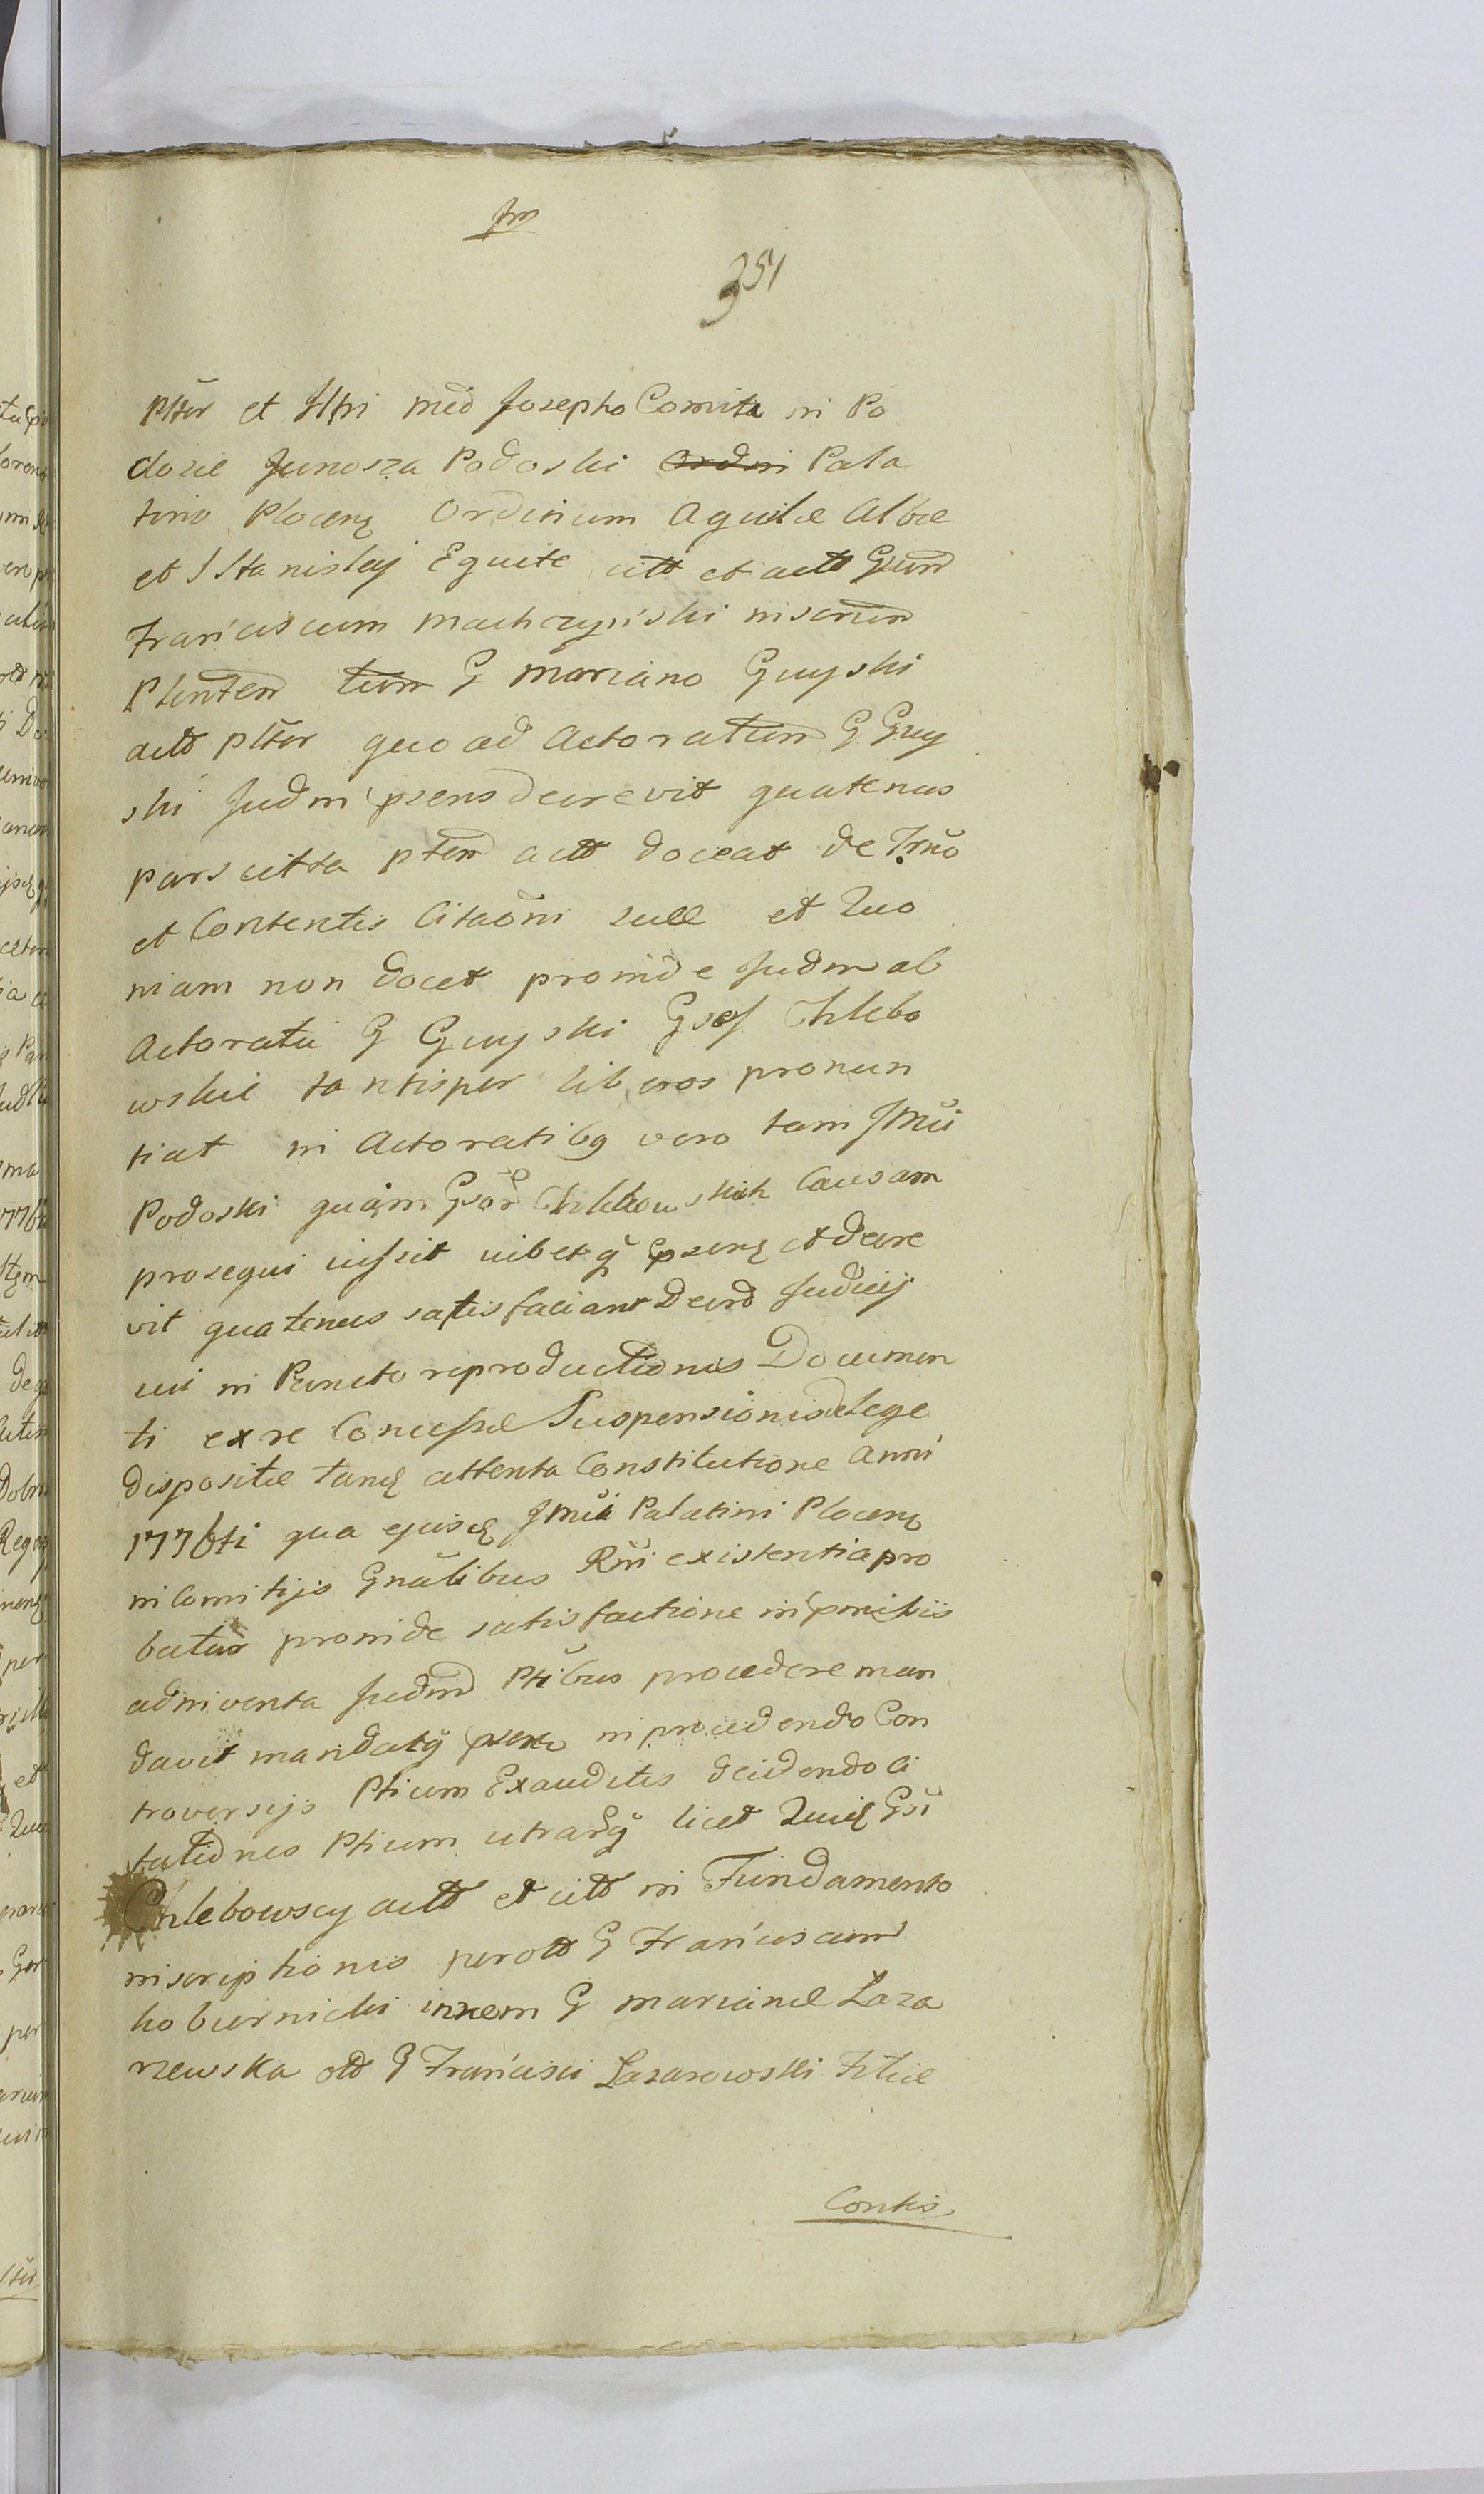 351
ptter et Illri mco Josepho Comite in Po
dozie Junosza Podoski Pala
tino Plocens Ordinum Aquilæ Albæ
et S Stanislaj Equite citt et actt Gnum
Franciscum Machczyński inscrum
Plentem G Mariano Guyski
actt ptter quoad Actoratum G Guy
ski Judm psens decrevit quatenus
pars citta ptem actt doceat de Trno
et Contentis Citaõni suæ et Quo
niam non docet proinde Judm ab
Actoratu G Guyski Gsos Chlebo
wskie tantisper liberos pronun
tiat in Actoratibq vero tam Jllmi
Podoski quam Gsor Chlebowskich Causam
prosequi jussit jubetq psens et decre
vit quatenus satisfaciant Decro Judicij
sui in Puncto reproductionis Documen
ti ex re Concessæ Suspensionis de lege
dispositæ tanq attenta Constitutione Anni
1776ti qua ejusd Jllmi Palatini Plocens
in Comitijs Gnalibus Rni existentia pro
batur proinde satisfactione in pmissis
adinventa Judm Ptibus procedere man
davit mandatq psens in procedendo Con
troversijs Ptium Exauditis decidendo Ci
tationes Ptium utrarq licet Quid Gsi
Chlebowscy actt et citt in Fundamento
inscriptionis per ott G Franciscum
Kobiernicki in rem G Mariannæ Laza
rzewska ott G Francisci Lazarowski Filiæ
Contis